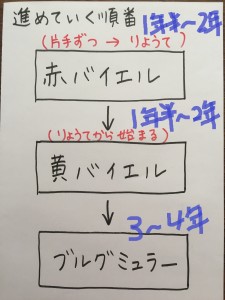 進めていく順番
1年半〜2年
(片手ずつ → りょうて)
赤バイエル
1年半〜2年
(りょうてから始まる)
黄バイエル
3〜4年
ブルグミュラー